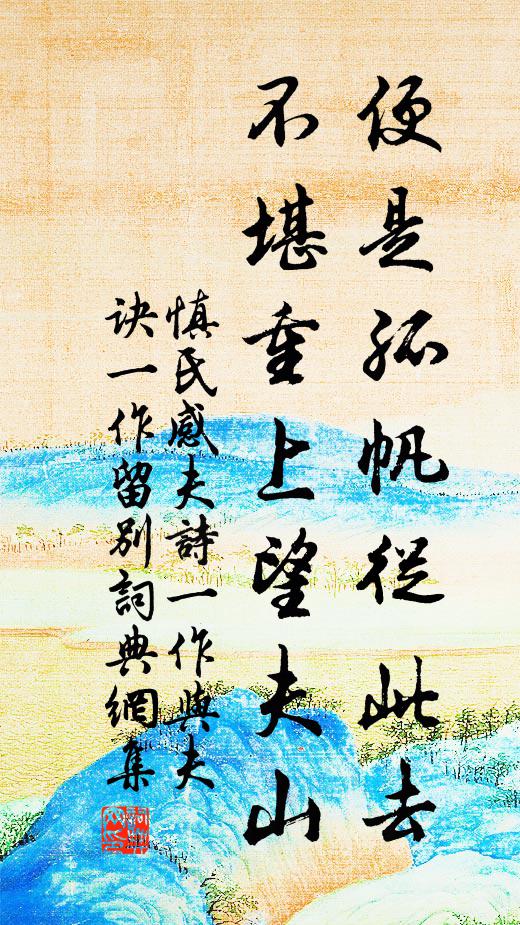 便是孤帆從此去
不堪重上望夫山
慎氏感夫詩一作與夫
訣一作留別詞典網集